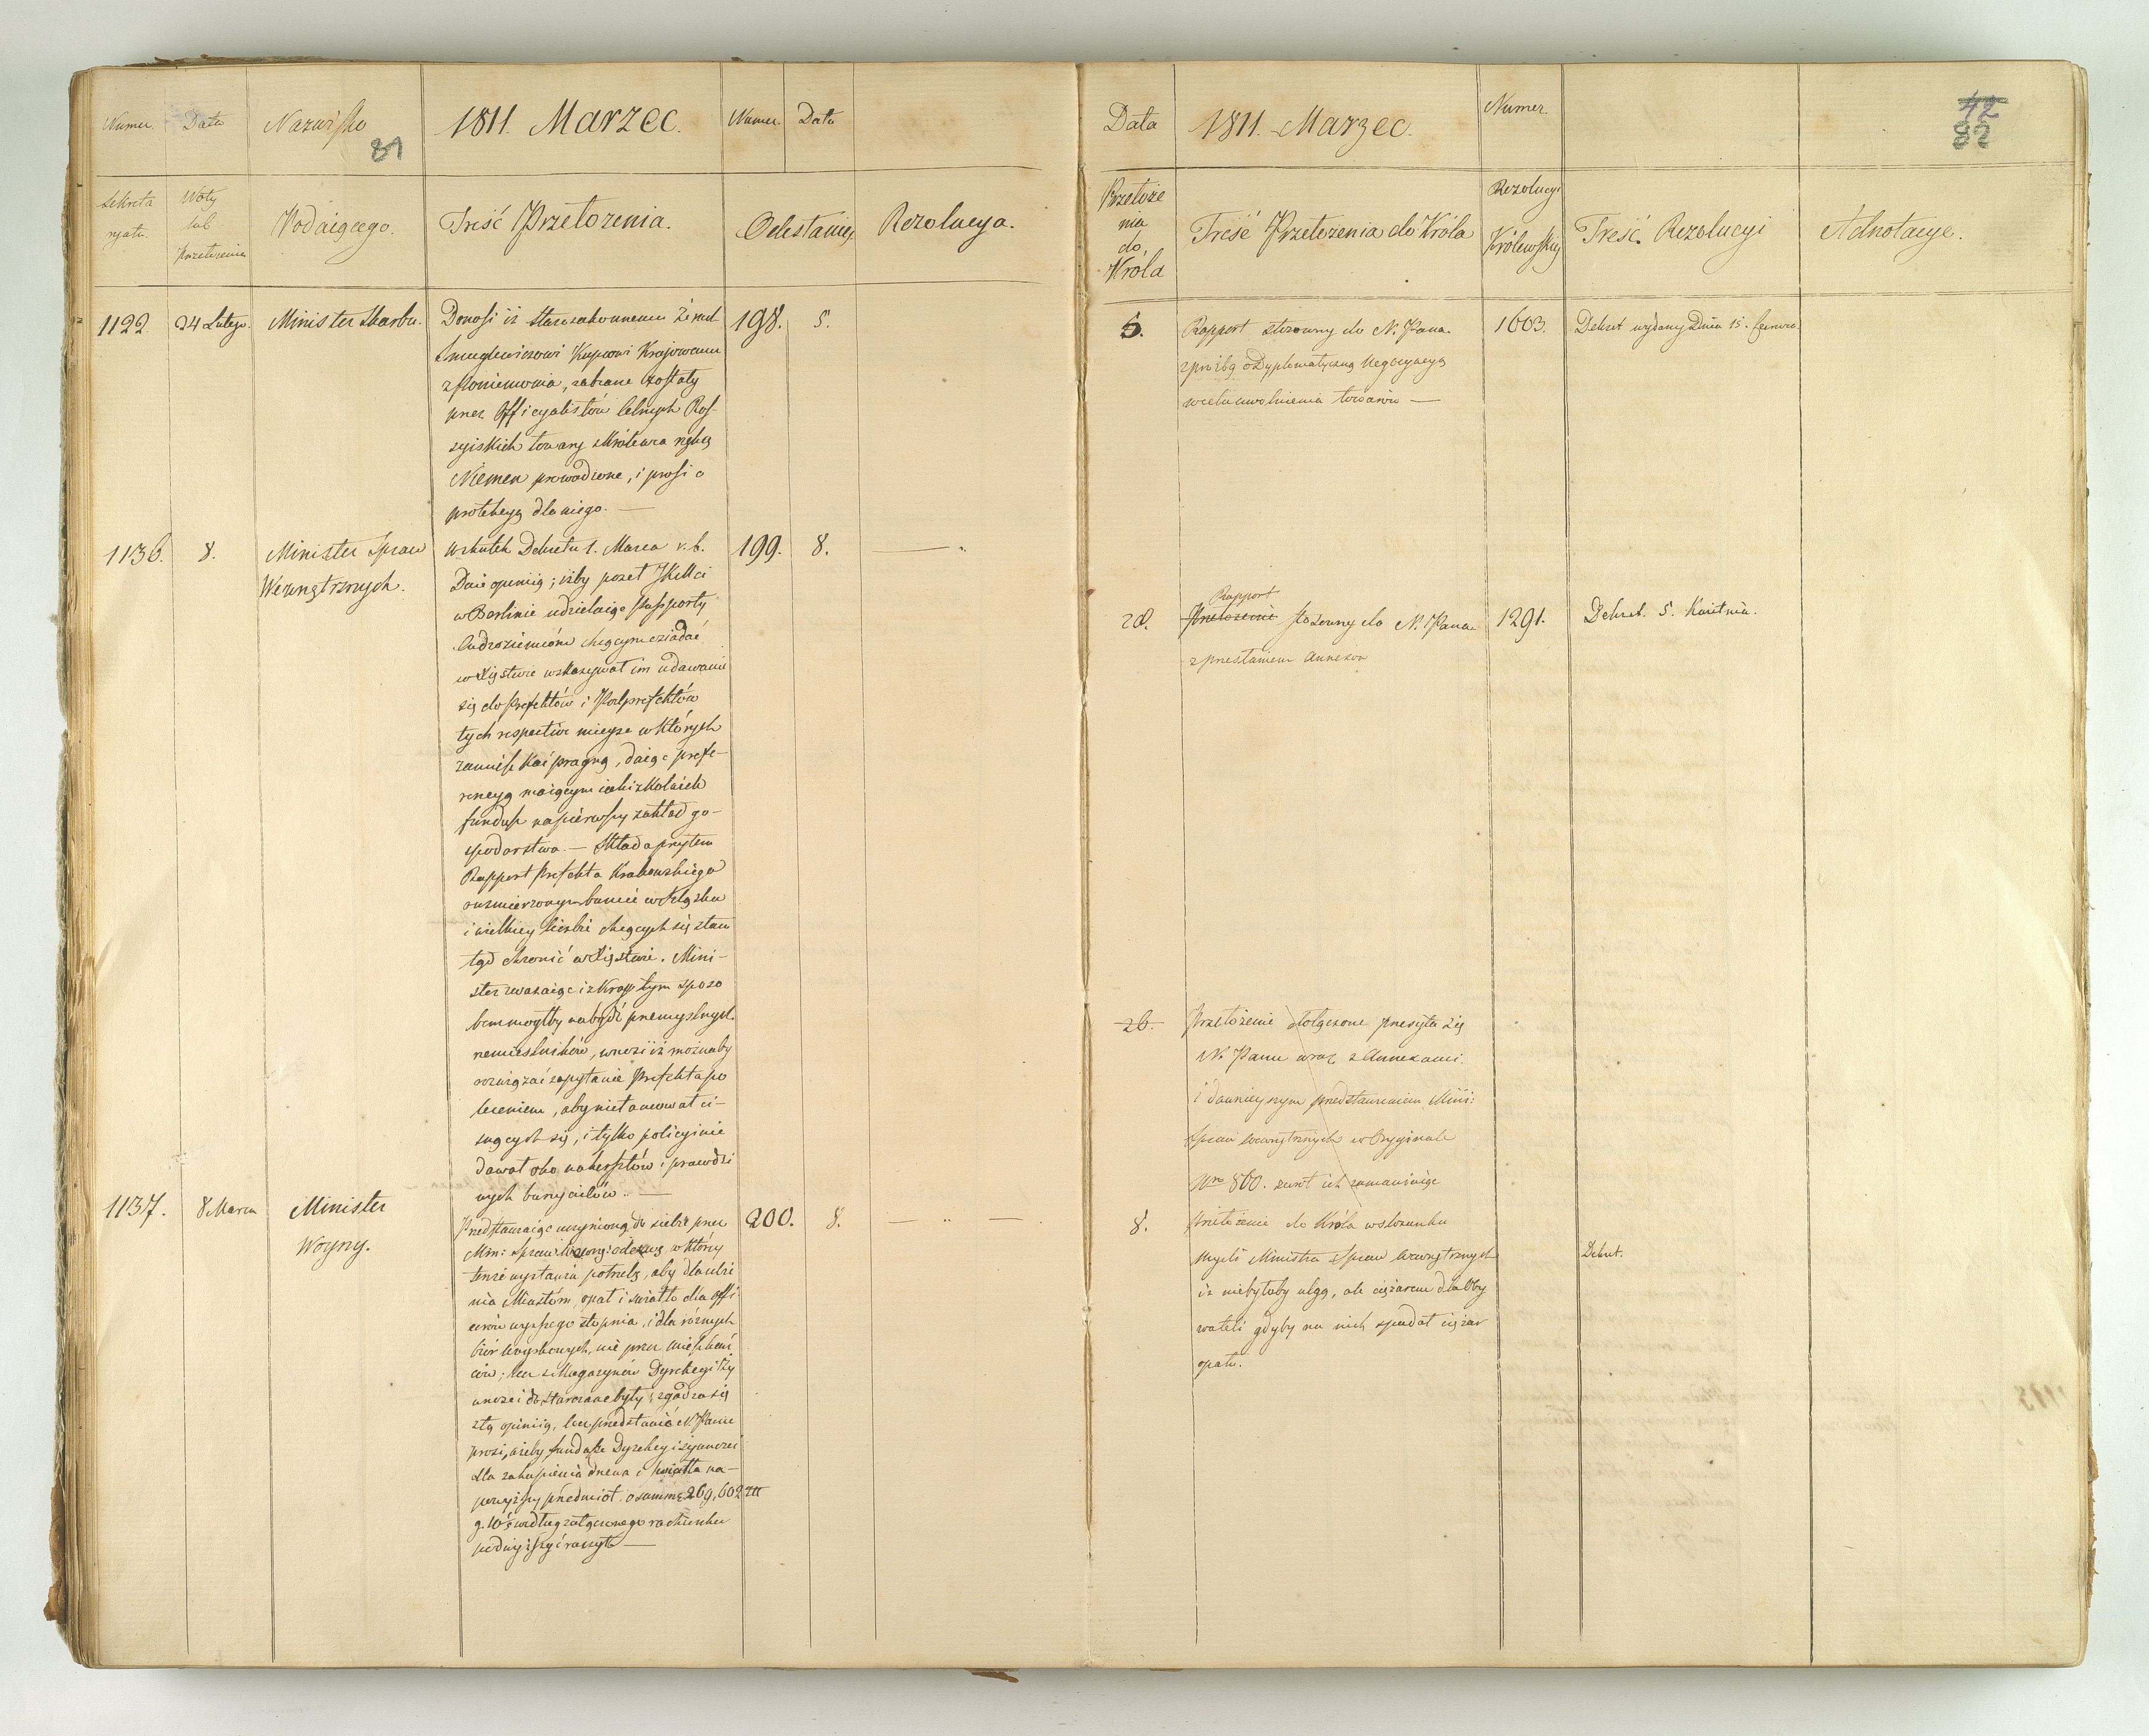 Numer. Data Nazwisko 1811. Marzec. Numer. Data
81
Sekreta Woty
ryatu. lub Podaiącego. Treść Przełożenia. Odesłania Rezolucya.
Przełożenia
1122 24 Lutego. Minister Skarbu. Donosi iż Starozakonnemu 198. 5.
Szmuglewiczowi Kupcowi Krajowemu
zabrane zostały
przez Officyalistów celnych Ros-
syiskich towary z Królewca rzeką
Niemen prowadzone, i prosi o
protekcyą dla niego. —
1136. 8. Minister Spraw Wskutek Dekretu 1. Marca r. b. 199. 8. —
Wewnętrznych. Daie opinią; iżby poseł JKMci
w Berlinie udzielaiąc Passporty
Cudzoziemcom chcącym osiadać
w Xięstwie wskazywał im udawanie
się do Prefektów i Podprefektów
tych respective mieysc w których
zamieszkać pragną, daiąc prefe-
rencyą maiącym iakiżkolwiek
fundusz na pierwszy zakład go-
spodarstwa. — Składa przytem
Rapport Prefekta Krakowskiego
o uśmierzonym buncie w Szląsku
i wielkiey liczbie chcących się ztam
tąd chronić w Xięstwie. Mini-
ster zważaiąc iż Kray tym sposo
bem mógłby nabydź przemyslnych
rzemieslników, wnosi iż możnaby
rozwiązać zapytanie Prefekta po
leceniem, aby nie tamował ci-
snących się, i tylko policyinie
dawał oko na hersztów i prawdzi
wych burzycielów. —
1137. 8 Marca Minister Przedstawiaiąc uczynioną do siebie przez 200. 8. — —
Woyny. Min: Spraw Wewn: odezwę w którey
tenże wystawia potrzebę, aby dla ulże
nia Miastom, opał i światło dla offi
cerów wyższego stopnia, i dla różnych
biór woyskowych, nie przez mieszkań
ców; lecz z Magazynów Dyrekcyi Ży
wności dostarczane były; zgadza się
z tą opinią, lecz przedstawić N. Panu
prosi, ażeby fundusze Dyrekcyi żywności
dla zakupienia drzewa i światła na
powyższy przedmiot o summę 269,602 złł
g. 10⅓ według załączonego rachunku
podwyższyć raczył. —
Data 1811. Marzec. Numer.
42
82
Przełoże Rezolucyi
nia Treść Przełożenia do Króla Królewskiey Treść Rezolucyi Adnotacye.
do
Króla
5. Rapport stosowny do N. Pana. 1603. Dekret wydany Dnia 15.
z prośbą o Dyplomatyczną Negocyacyą
w celu uwolnienia towarów —
Rapport
28. Przełożenie stosowny do N. Pana 1291. Dekret. 5. Kwietnia.
z przesłaniem Annexow
26. Przełożenie dołączone przesyła się
N. Panu wraz z Annexami.
i dawnieyszym przedstawieniem Mini:
Spraw Wewnętrznych w Oryginale
Nro 860. zwrot ich zamawiaiąc
8. Przełożenie do Króla w stosunku
mysli Ministra Spraw Wewnętrznych Dekret.
iż niebyłoby ulgą, ale ciężarem dla Oby
wateli gdyby na nich spadał ciężar
opału.